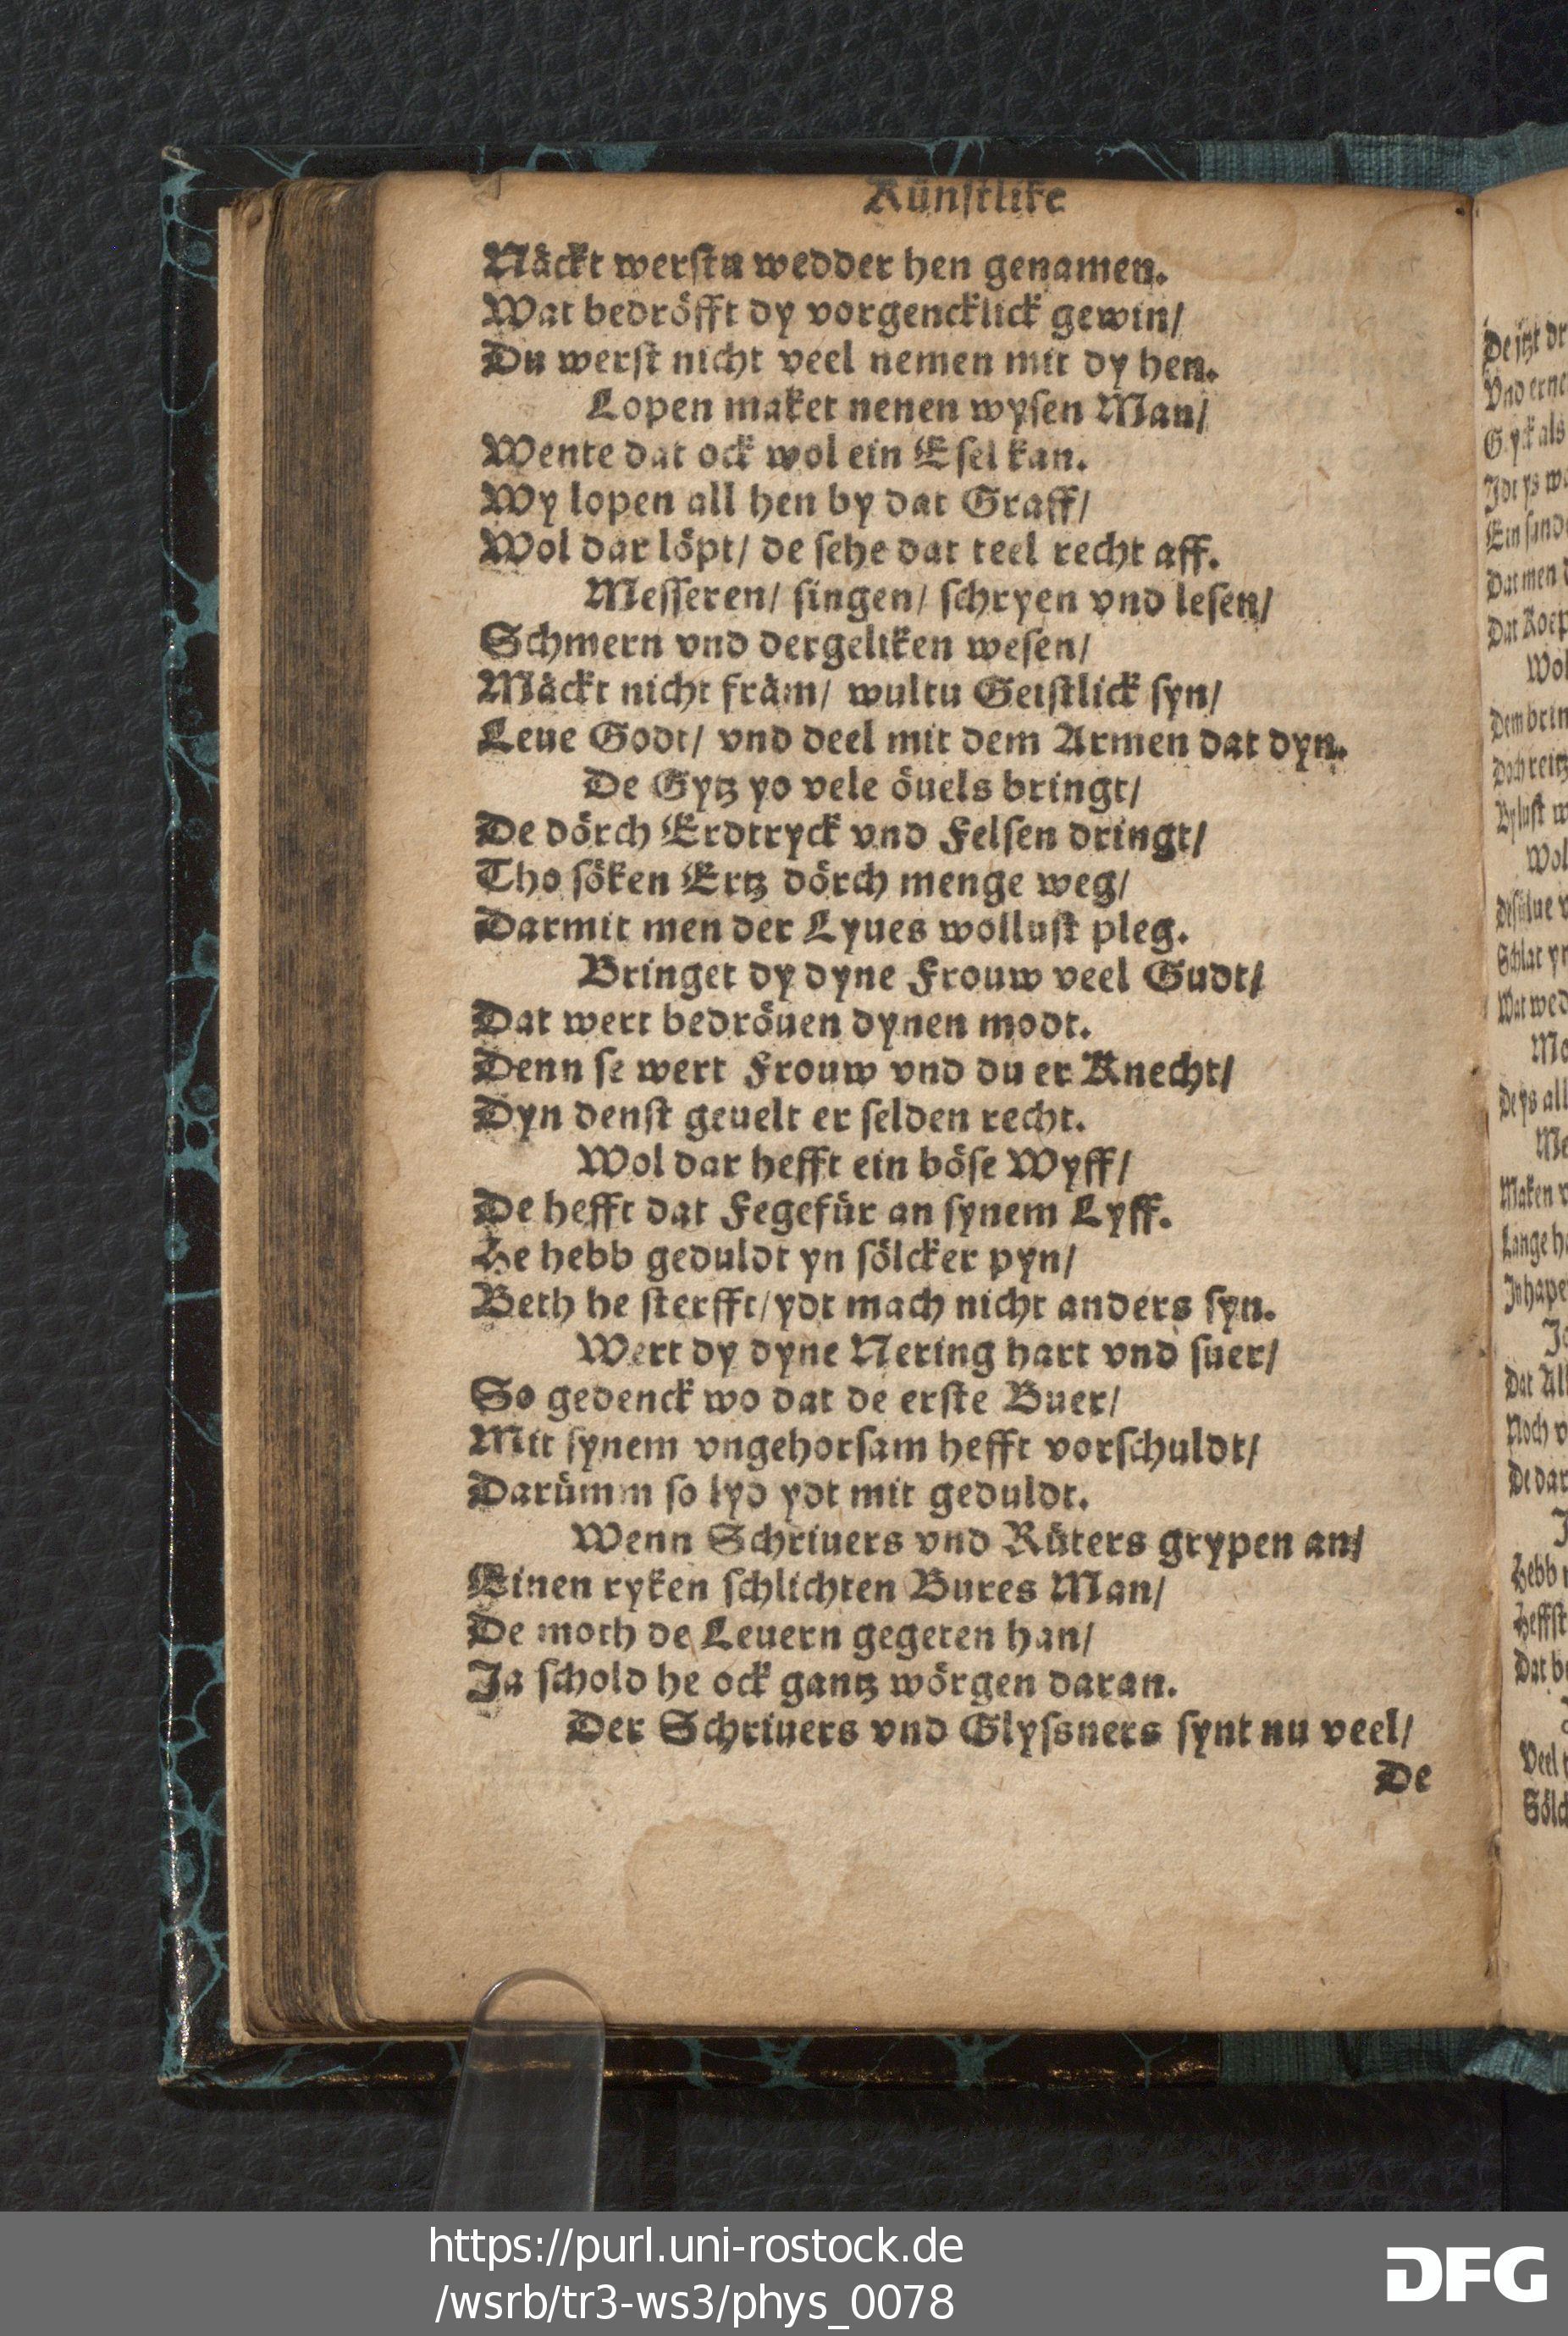 Künſtlike
Näckt werſtu wedder hen genamen.
Wat bedröfft dy vorgencklick gewin/
Du werſt nicht veel nemen mit dy hen.
Lopen maket nenen wyſen Man/
Wente dat ock wol ein Eſel kan.
Wy lopen all hen by dat Graff/
Wol dar löpt/ de ſehe dat teel recht aff.
Meſſeren/ ſingen/ ſchryen vnd leſen/
Schmern vnd dergeliken weſen/
Mäckt nicht främ/ wultu Geiſtlick ſyn/
Leue Godt/ vnd deel mit dem Armen dat dyn.
De Gytz yo vele öuels bringt/
De dörch Erdtryck vnd Felſen dringt/
Tho ſöken Ertz dörch menge weg/
Darmit men der Lyues wolluſt pleg.
Bringet dy dyne Frouw veel Gudt/
Dat wert bedröuen dynen modt.
Denn ſe wert Frouw vnd du er Knecht/
Dyn denſt geuelt er ſelden recht.
Wol dar hefft ein böſe Wyff/
De hefft dat Fegefür an ſynem Lyff.
He hebb geduldt yn ſölcker pyn/
Beth he ſterfft/ ydt mach nicht anders ſyn.
Wert dy dyne Nering hart vnd ſuer/
So gedenck wo dat de erſte Buer/
Mit ſynem vngehorſam hefft vorſchuldt/
Darümm ſo lyd ydt mit geduldt.
Wenn Schriuers vnd Rüters grypen an/
Einen ryken ſchlichten Bures Man/
De moth de Leuern gegeten han/
Ja ſchold he ock gantz wörgen daran.
Der Schriuers vnd Glyſsners ſynt nu veel/
De
De jtzt dr
Vnd erne
Dat men
Wol
Wol
Lange h
Dat
De dar
Hebb
Dat
Veel
https://purl.uni-rostock.de
/wsrb/tr3-ws3/phys_0078
DFG